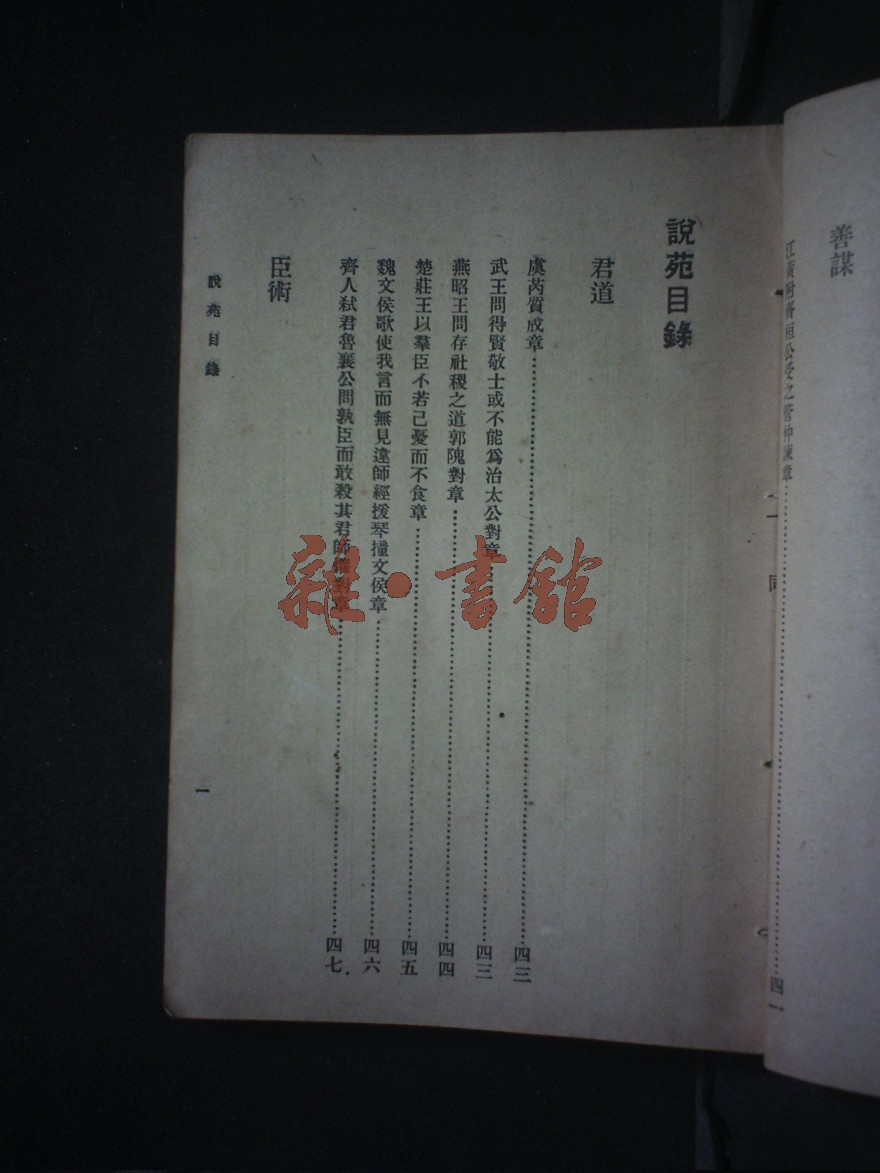 善謀
江黃附齊桓公受之管仲諫章
四一
說苑目錄
君道
虞芮質成章 四三
武王問得賢敬士或不能爲治太公對章 四三
燕昭王問存社稷之道郭隗對章 四四
楚莊王以羣臣不若己憂而不食章 四五
魏文侯歌使我言而無見違師經援琴撞文侯章 四六
齊人弒君魯襄公問孰臣而敢殺其君師對章 四七
臣術
說苑目錄
一
雜·書舘